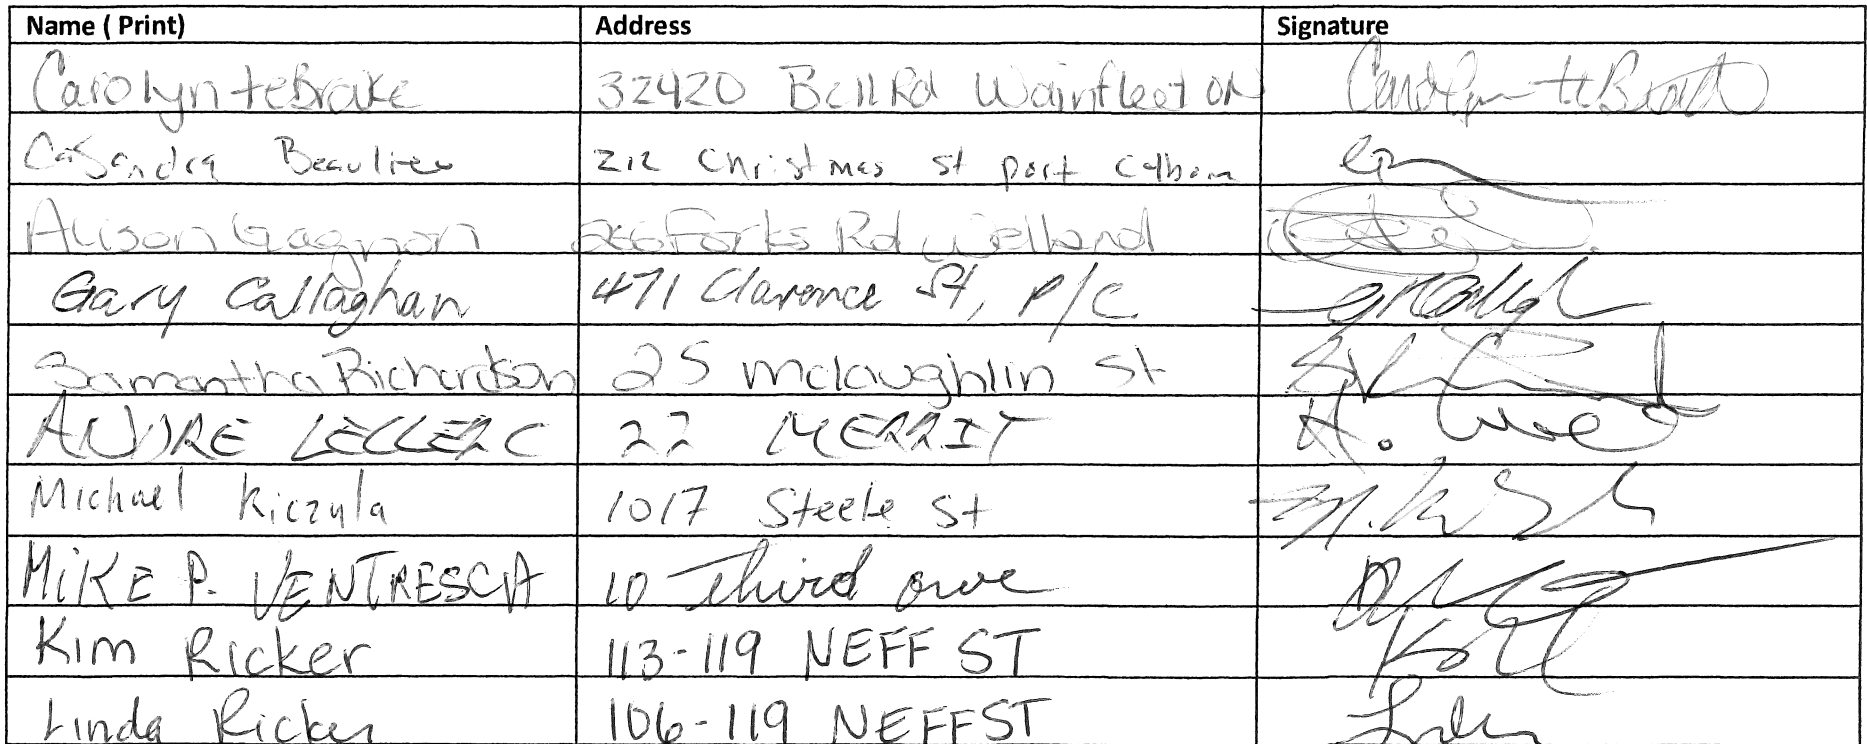 Name ( Print) Address Signature
Carolyn teBrake 32420 Bell Rd Wainfleet ON Carolyn teBrake
Casandra Beaulieu 212 Christmas st port Colborn
Alison Gagnon 266 Forks Rd Welland
Gary Callaghan 471 Clarence St, P/C
Samantha Richardson 25 mclaughlin St
ANDRE LECLERC 22 MERRIT
Michael Kiczula 1017 Steele St
MIKE P. VENTRESCA 10 Third ave
Kim Ricker 113-119 NEFF ST
Linda Ricker 106-119 NEFF ST